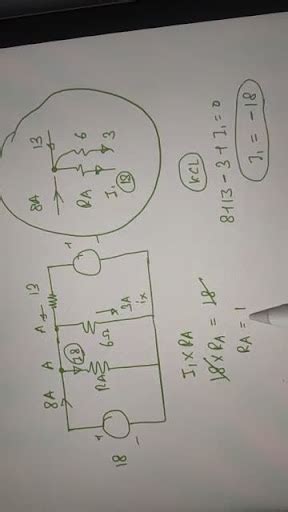 8A
13
RA
6
3
I₁
18
KCL
8+13-3+I₁=0
I₁ = -18
18
+
-
8A
A
18
RA
A
13
6Ω
3A
ix
+
-
I₁ x RA
18 x RA = 18
RA = 1